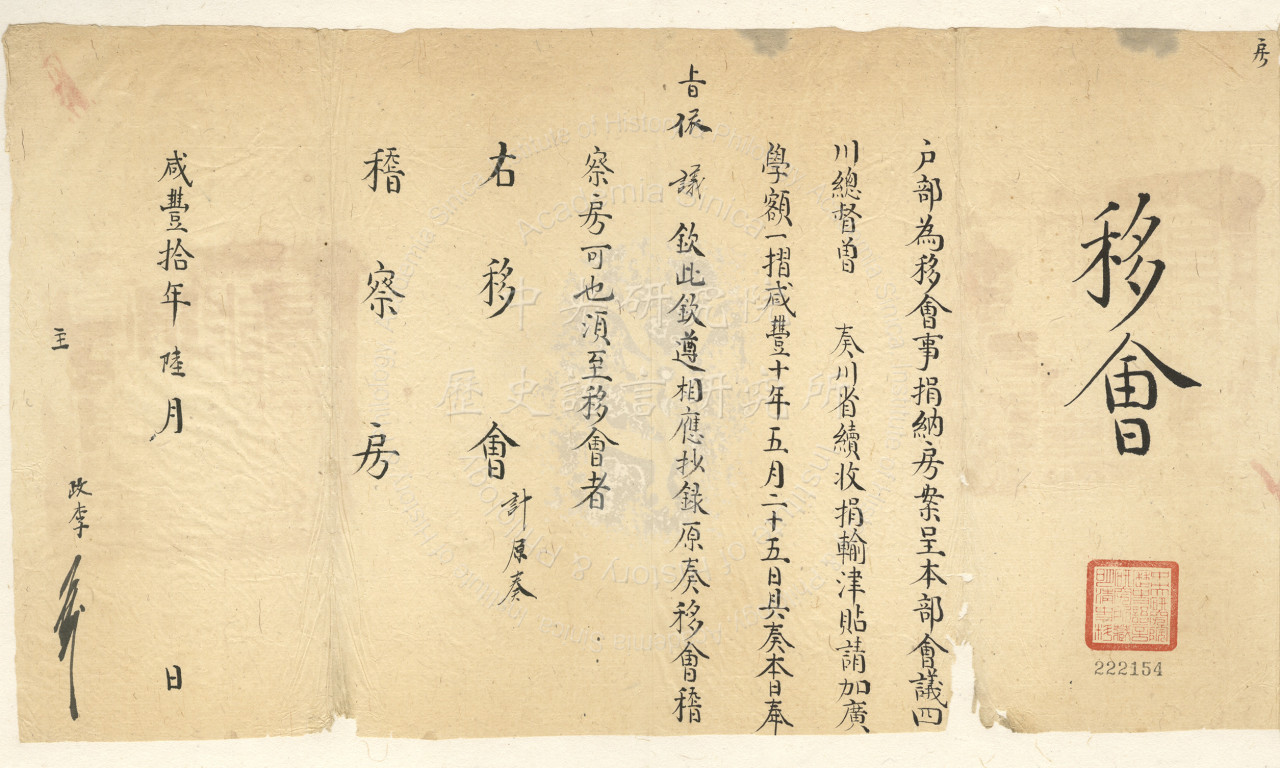 房
移會
222154
戶部為移會事捐納房案呈本部會議四
川總督曾 奏川省續收捐輸津貼請加廣
學額一摺咸豐十年五月二十五日具奏本日奉
旨依議欽此欽遵相應抄錄原奏移會稽
察房可也須至移會者
計原奏
右移會
稽察房
咸豐拾年陸月 日
主
政李
中央研究院
歷史語言研究所